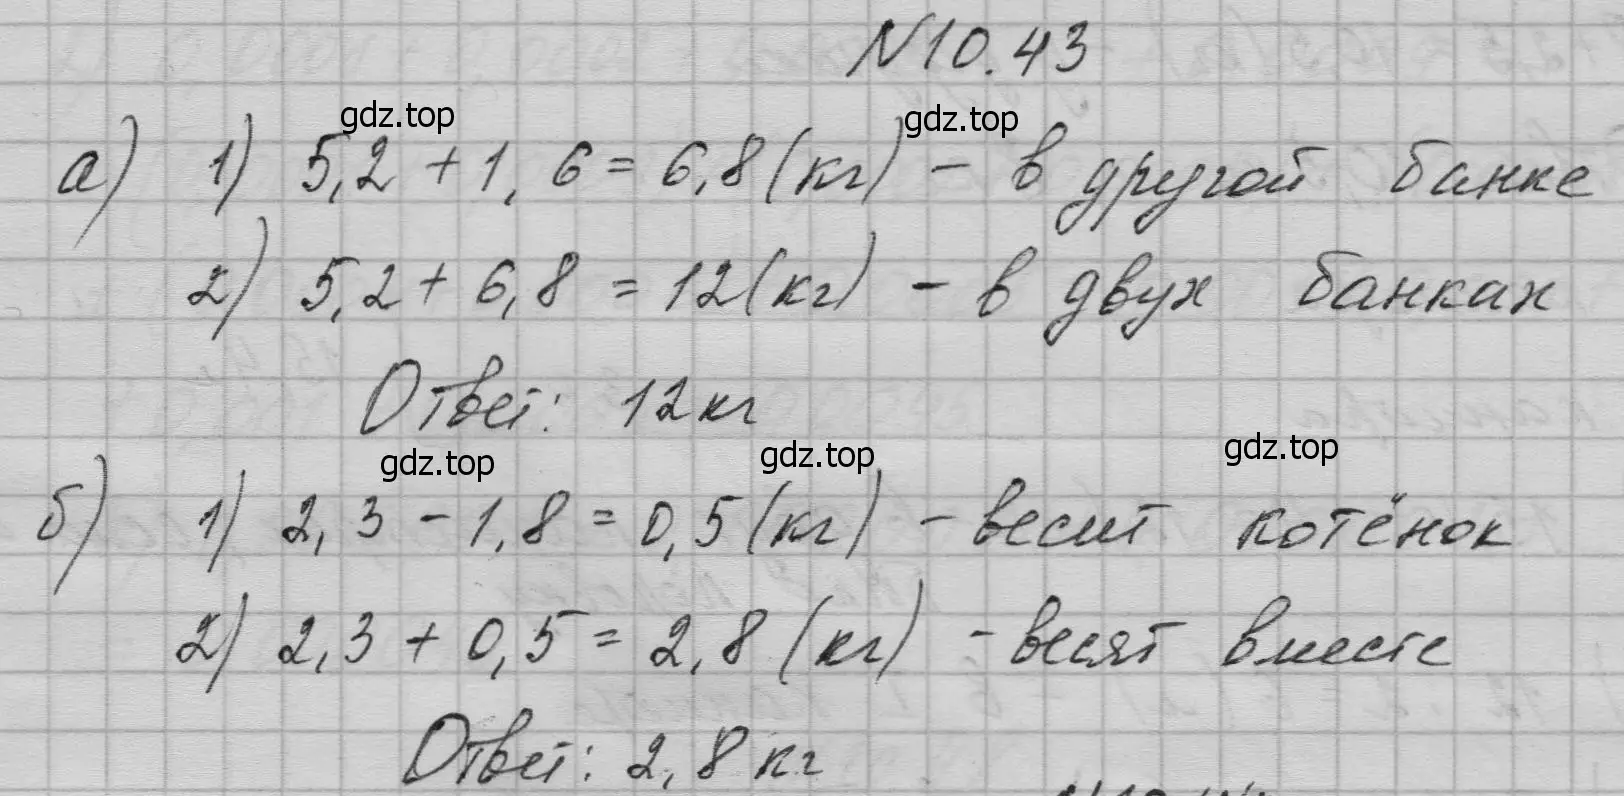 N10.43
gdz.top gdz.top
а) 1) 5,2 + 1,6 = 6,8 (кг) - в другой банке
2) 5,2 + 6,8 = 12 (кг) - в двух банках
Ответ: 12 кг
gdz.top gdz.top gdz.top
б) 1) 2,3 - 1,8 = 0,5 (кг) - весит котёнок
2) 2,3 + 0,5 = 2,8 (кг) - весят вместе
Ответ: 2,8 кг